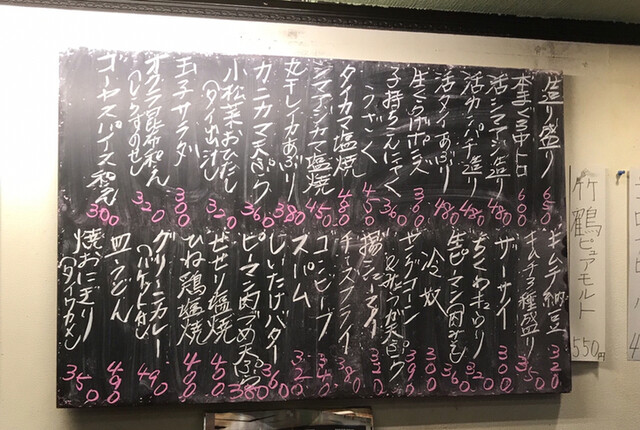 造り盛り 650
本まぐろ中トロ 600
活シマアジ造り 480
活カンパチ造り 480
活タイあぶり 480
生つぶげポン酢 360
子持ちこんにゃく 300
うざく 450
タイカマ塩焼 450
シマアジカマ塩焼 450
丸干しイカあぶり 380
カニカマ天ぷら 360
小松菜おひたし 320
(タイ出汁)
玉子サラダ 300
オクラ昆布和え 320
(しらすのせ)
ゴーヤスパイス和え 300
キムチ納豆 320
キムチ3種盛り 350
ザーサイ 300
ちくわキュウリ 320
生ピーマン肉みそ 360
冷奴 300
ヤングコーン 390
揚シューマイ 320
チーズフライ 380
コンビーフ 320
スパム
しいたけバター 360
ピーマン肉づめ天ぷら 380
せせり塩焼 450
ひね鶏塩焼 400
グリーンカレー 490
(バケット付)
皿うどん 490
焼おにぎり 350
竹鶴ピュアモルト
550円